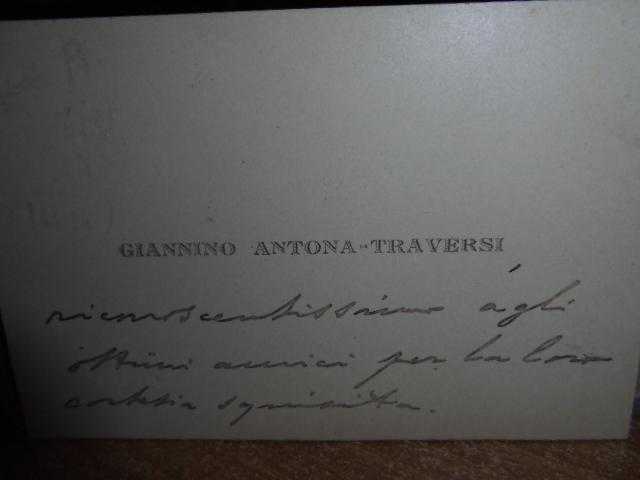 GIANNINO ANTONA-TRAVERSI
riconoscentissimo agli
ottimi amici per la loro
cortesia squisita.